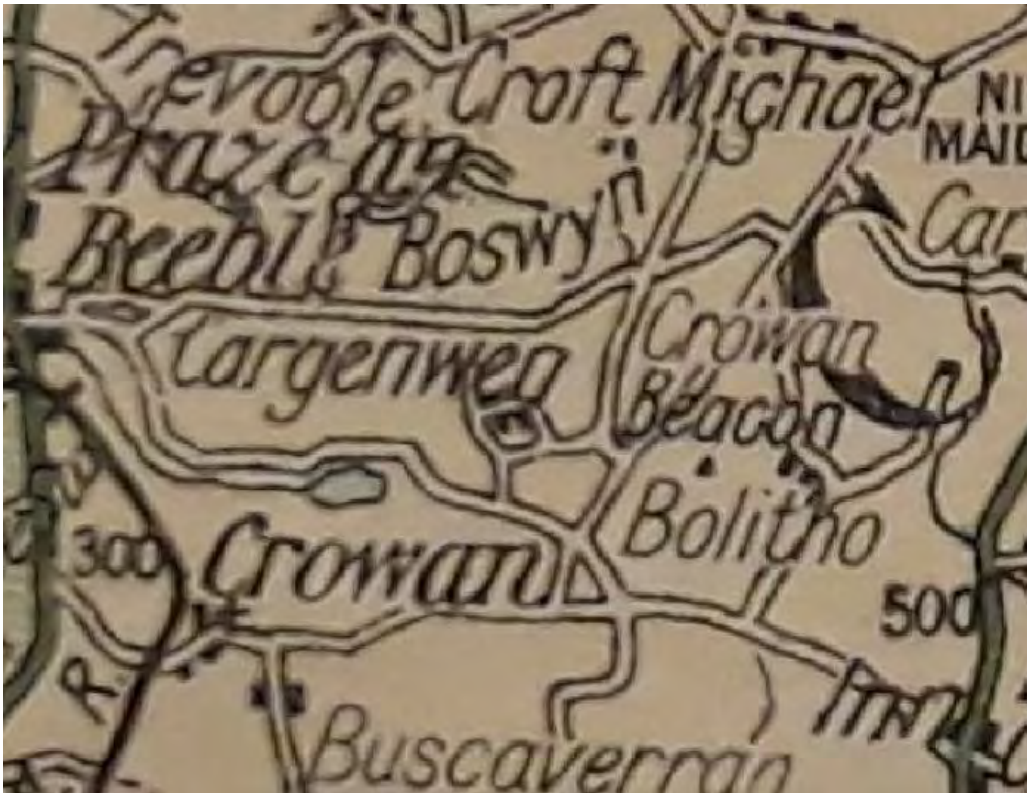 Trevoole Croft Michael
NI
MAID
Praze an
Beeble
Boswyn
Car
Crowan
Beacon
Targenwen
Bolitho
300
Crowan
500
R.
Inn
Buscaverran